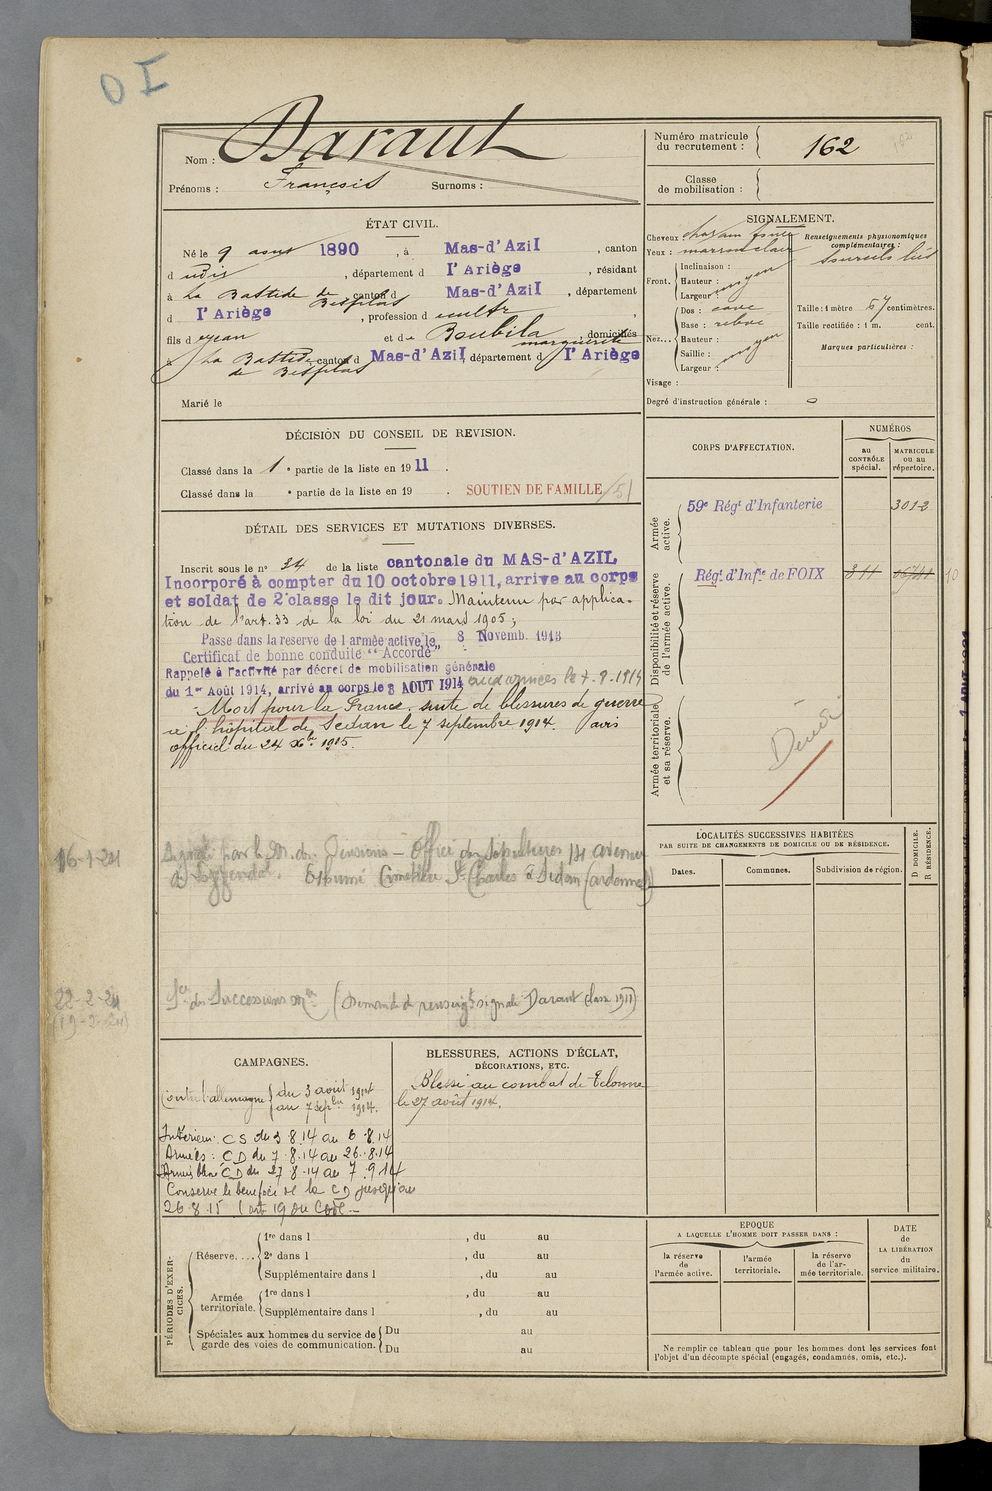 OI
Nom : Daraut
Prénoms : François Surnoms :
Numéro matricule du recrutement : 162
Classe de mobilisation :
ÉTAT CIVIL.
Né le 9 aout 1890, à Mas-d'Azil, canton
d udit, département d l'Ariège, résidant
à La Bastide de Besplas canton d Mas-d'Azil, département
d l'Ariège, profession d cultr,
fils d Jean et de Boubila marguerite, domiciliés
à La Bastide de Besplas canton d Mas-d'Azil, département d l'Ariège
Marié le
SIGNALEMENT.
Cheveux :
Yeux : marron clair
Front. Inclinaison :
Hauteur : moyen
Largeur :
Nez... Dos : cave
Base : relevé
Hauteur :
Saillie : moyen
Largeur :
Visage :
Renseignements physionomiques complémentaires :
sourcils liés
Taille : 1 mètre 67 centimètres.
Taille rectifiée : 1 m. cent.
Marques particulières :
Degré d'instruction générale : 0
DÉCISION DU CONSEIL DE REVISION.
Classé dans la 1e partie de la liste en 1911.
Classé dans la e partie de la liste en 19 . SOUTIEN DE FAMILLE
DÉTAIL DES SERVICES ET MUTATIONS DIVERSES.
Inscrit sous le n° 24 de la liste cantonale du MAS-d'AZIL
Incorporé à compter du 10 octobre 1911, arrive au corps
et soldat de 2e classe le dit jour. Maintenu par applica-
tion de l'art. 33 de la loi du 21 mars 1905;
Passe dans la reserve de l'armée active le 8 Novemb. 1913
Certificat de bonne conduite "Accordé"
Rappelé à l'activité par décret de mobilisation générale
du 1er Août 1914, arrivé au corps le 3 AOUT 1914 aux armées le 7-8-1914
Mort pour la France, suite de blessures de guerre
à l'hôpital de Sedan le 7 septembre 1914. avis
officiel du 24 Xbre 1915.
16-1-24 Signalé par le M. des Pensions - Office des Sépultures
Inhumé Cimetière St Charles à Sedan (Ardennes)
22-2-24
(19-2-24)
des Successions (Demande de renseigts signale Daraut classe 1911)
CORPS D'AFFECTATION.
NUMÉROS
au CONTRÔLE spécial.
MATRICULE ou au répertoire.
Armée active.
59e Régt d'Infanterie 3012
Disponibilité et réserve de l'armée active.
Régt d'Infie de FOIX 10
Armée territoriale et sa réserve.
Décédé
LOCALITÉS SUCCESSIVES HABITÉES
PAR SUITE DE CHANGEMENTS DE DOMICILE OU DE RÉSIDENCE.
Dates.
Communes.
Subdivision de région.
D DOMICILE.
R RÉSIDENCE.
CAMPAGNES.
Contre l'allemagne du 3 août 1914
au 7 septbre 1914.
Intérieur : CS du 3.8.14 au 6.8.14
Armées : CD du 7.8.14 au 26.8.14
CD du 27.8.14 au 7.9.14
Conserve le bénéfice de la CD jusqu'au
26.8.15 (art 19 du Code.-
BLESSURES, ACTIONS D'ÉCLAT,
DÉCORATIONS, ETC.
Blessé au combat de Télonne
le 27 août 1914.
PÉRIODES D'EXERCICES.
Réserve.... 1re dans l , du au
2e dans l , du au
Supplémentaire dans l , du au
Armée territoriale. 1re dans l , du au
Supplémentaire dans l , du au
Spéciales aux hommes du service de garde des voies de communication. Du au
Du au
EPOQUE
A LAQUELLE L'HOMME DOIT PASSER DANS :
la réserve de l'armée active.
l'armée territoriale.
la réserve de l'armée territoriale.
DATE
de
LA LIBÉRATION
du
service militaire.
Ne remplir ce tableau que pour les hommes dont les services font
l'objet d'un décompte spécial (engagés, condamnés, omis, etc.).